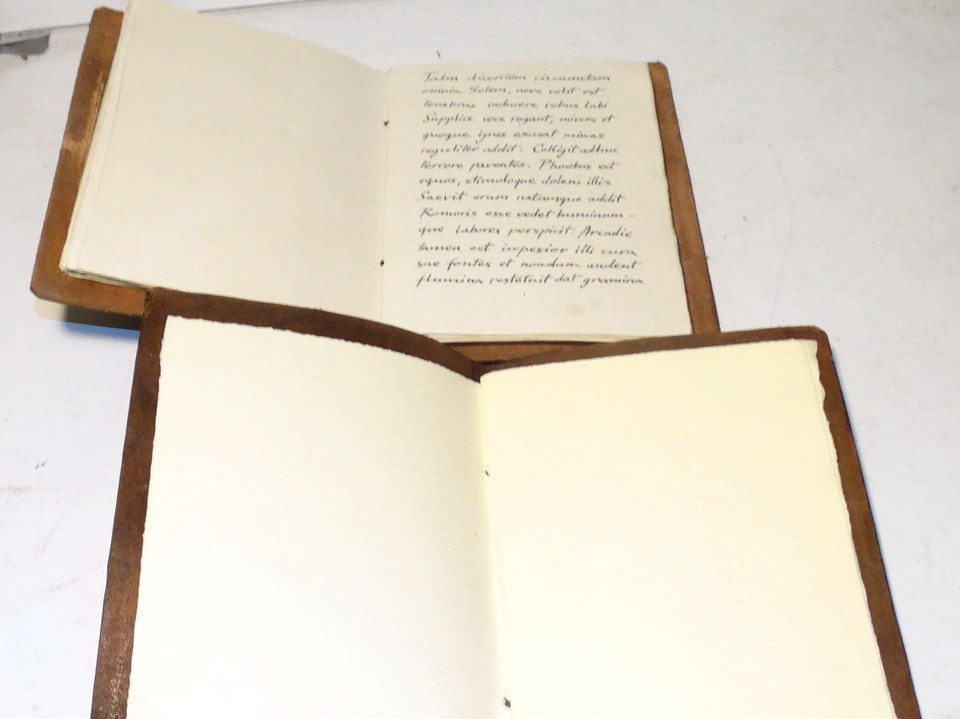 Talia dicentem circumstam
omnia Solem, neve velit est
tenebras inducere rebus labi
Supplice voce rogant; missos et
quoque ignes excusat minas
regaliter addit. Colligit adhuc
terrore paventes. Phoebus est
equos, stimoloque dolens illis
Saevit erum natumque addit
Romoris esse vedet huminum-
que labores perspicit. Arcadie
tamen est impesior illi cura
sae fontes et nondum audent
flumina restetiuit dat gramina